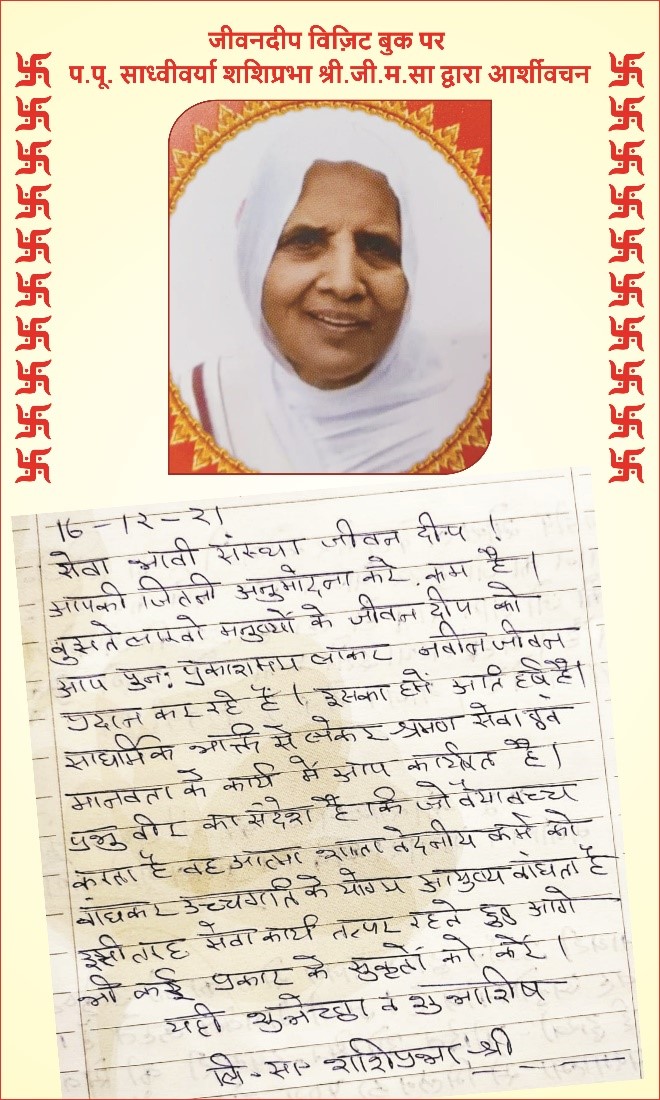 जीवनदीप विज़िट बुक पर
प.पू. साध्वीवर्या शशिप्रभा श्री.जी.म.सा द्वारा आर्शीवचन
16-१२-२१
सेवा भावी संस्था जीवन दीप !
आपकी जितनी अनुमोदना करे, कम है ।
बुझते लाखो मनुष्यों के जीवन दीप को
आप पुनः प्रकाशमय लाकर नवीन जीवन
प्रदान कर रहे है । इसका हमें अति हर्ष है।
साधर्मिक भक्ति से लेकर श्रमण सेवा एवं
मानवता के कार्य में आप कार्यरत है ।
प्रभु वीर का संदेश है कि जो वैयावच्च
करता है वह आत्मा शाता वेदनीय कर्म को
बांधकर उच्चगति के योग्य आयुष्य बांधता है
इसी तरह सेवा कार्य तत्पर रहते हुए आगे
भी कई प्रकार के सुकृतों को करें ।
यही शुभेच्छा व शुभाशिष
लि. सा. शशिप्रभा श्री